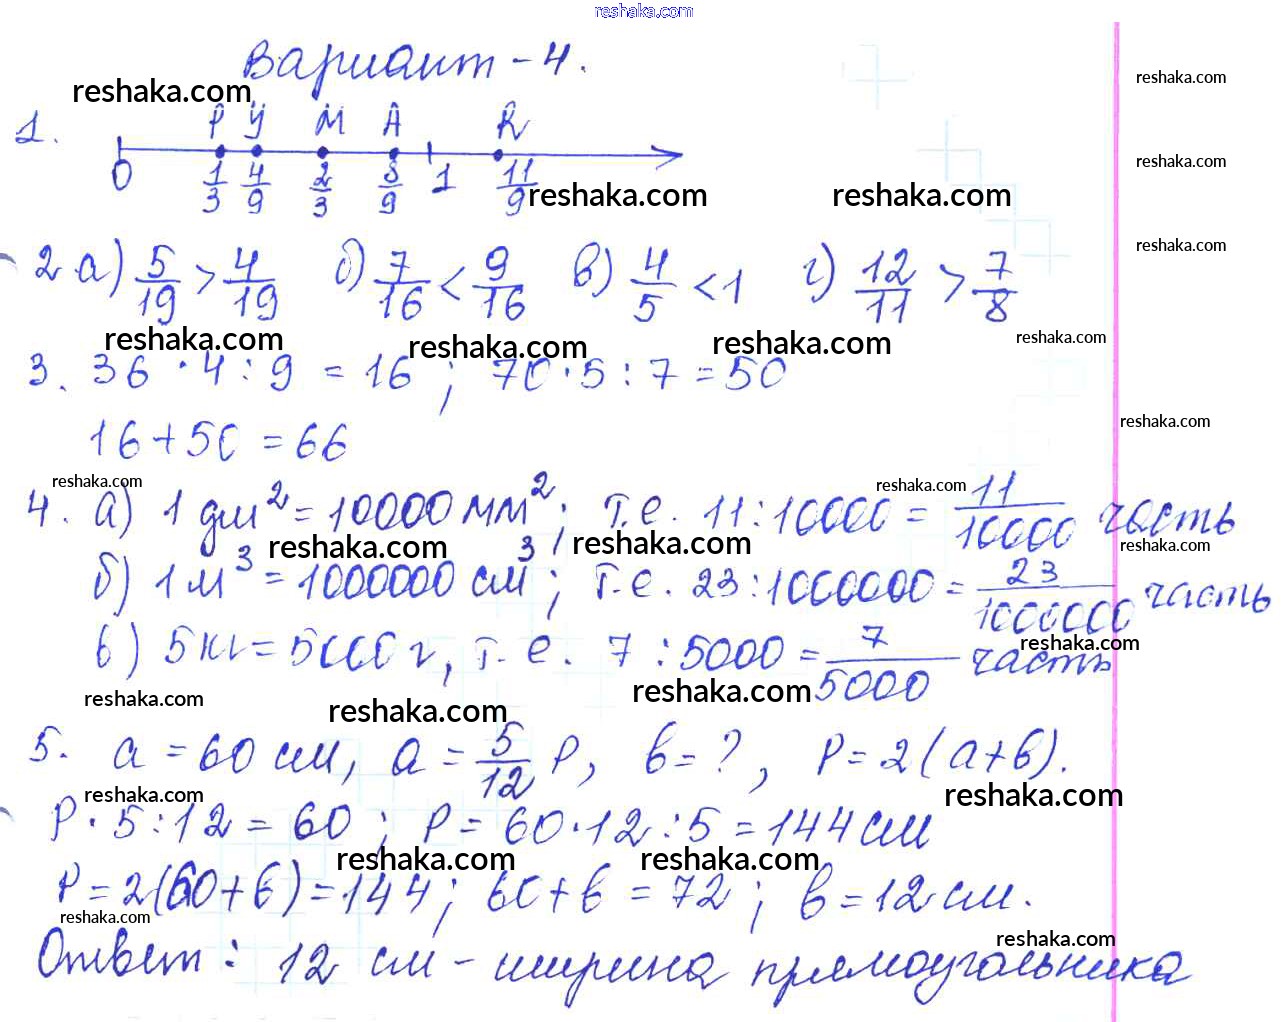 reshaka.com
Вариант - 4.
reshaka.com reshaka.com
1. P У M A R
0 1/3 4/9 2/3 8/9 1 11/9
reshaka.com reshaka.com reshaka.com
2 а) 5/19 > 4/19 б) 7/16 < 9/16 в) 4/5 < 1 г) 12/11 > 7/8
reshaka.com
reshaka.com reshaka.com reshaka.com reshaka.com
3. 36 · 4 : 9 = 16 ; 70 · 5 : 7 = 50
16 + 50 = 66
reshaka.com
reshaka.com reshaka.com
4. а) 1 дм² = 10000 мм² ; т.е. 11 : 10000 = 11/10000 часть
reshaka.com reshaka.com reshaka.com
б) 1 м³ = 1000000 см³ ; т.е. 23 : 1000000 = 23/1000000 часть
reshaka.com
в) 5 кг = 5000 г, т.е. 7 : 5000 = 7/5000 часть
reshaka.com reshaka.com reshaka.com
5. a = 60 см, a = 5/12 P, b = ? , P = 2(a+b).
reshaka.com reshaka.com
P · 5 : 12 = 60 ; P = 60 · 12 : 5 = 144 см
reshaka.com reshaka.com
P = 2(60+b) = 144 ; 60 + b = 72 ; b = 12 см.
reshaka.com reshaka.com
Ответ : 12 см - ширина прямоугольника